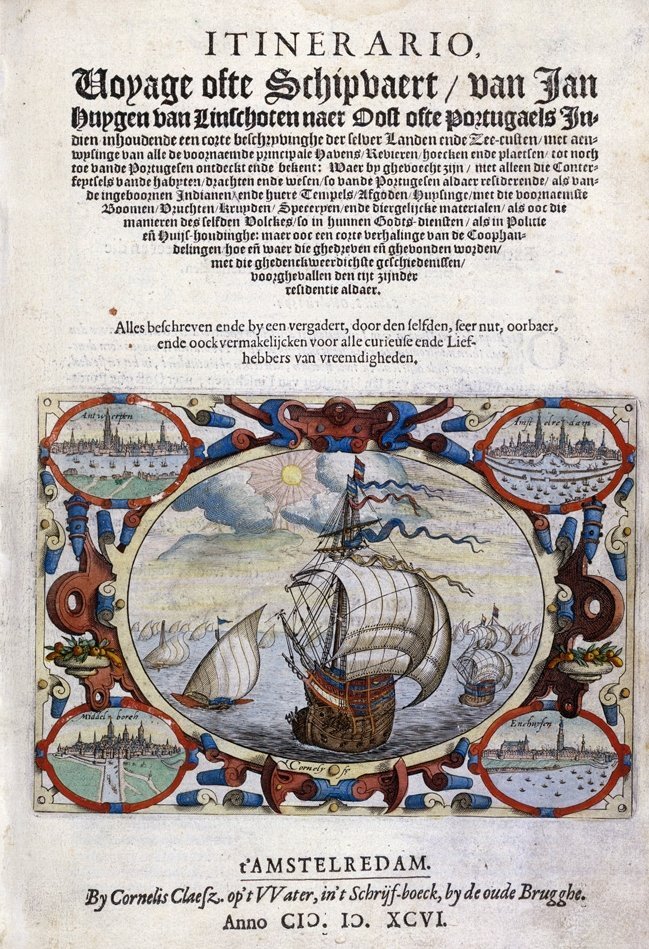 ITINERARIO,
Voyage ofte Schipvaert / van Jan
Huygen van Linschoten naer Oost ofte Portugaels In-
dien inhoudende een corte beschryvinghe der selver Landen ende Zee-custen / met aen-
wysinge van alle de voornaemde principale Havens / Revieren / hoecken ende plaetsen / tot noch
toe vande Portugesen ontdeckt ende bekent: Waer by ghevoecht zijn / niet alleen die Conter-
feytsels vande habyten / drachten ende wesen / so vande Portugesen aldaer residerende / als van-
de ingeboornen Indianen / ende huere Tempels / Afgoden / Huysinge / met die voornaemste
Boomen / Vruchten / Kruyden / Speceryen / ende diergelijcke materialen / als ooc die
manieren des selfden Volckes / so in hunnen Godts-diensten / als in Politie
eñ Huijs-houdinghe: maer ooc een corte verhalinge van de Coophan-
delingen hoe eñ waer die ghedreven eñ ghevonden worden /
met die ghedenckweerdichste geschiedenissen /
voorghevallen den tijt zijnder
residentie aldaer.
Alles beschreven ende by een vergadert, door den selfden, seer nut, oorbaer,
ende oock vermakelijcken voor alle curieuse ende Lief-
hebbers van vreemdigheden.
Antwerpen
Amstelredam
Middelboren
Enchuysen
t'AMSTELREDAM.
By Cornelis Claesz. op't VVater, in't Schrijf-boeck, by de oude Brugghe.
Anno CIↃ. IↃ. XCVI.